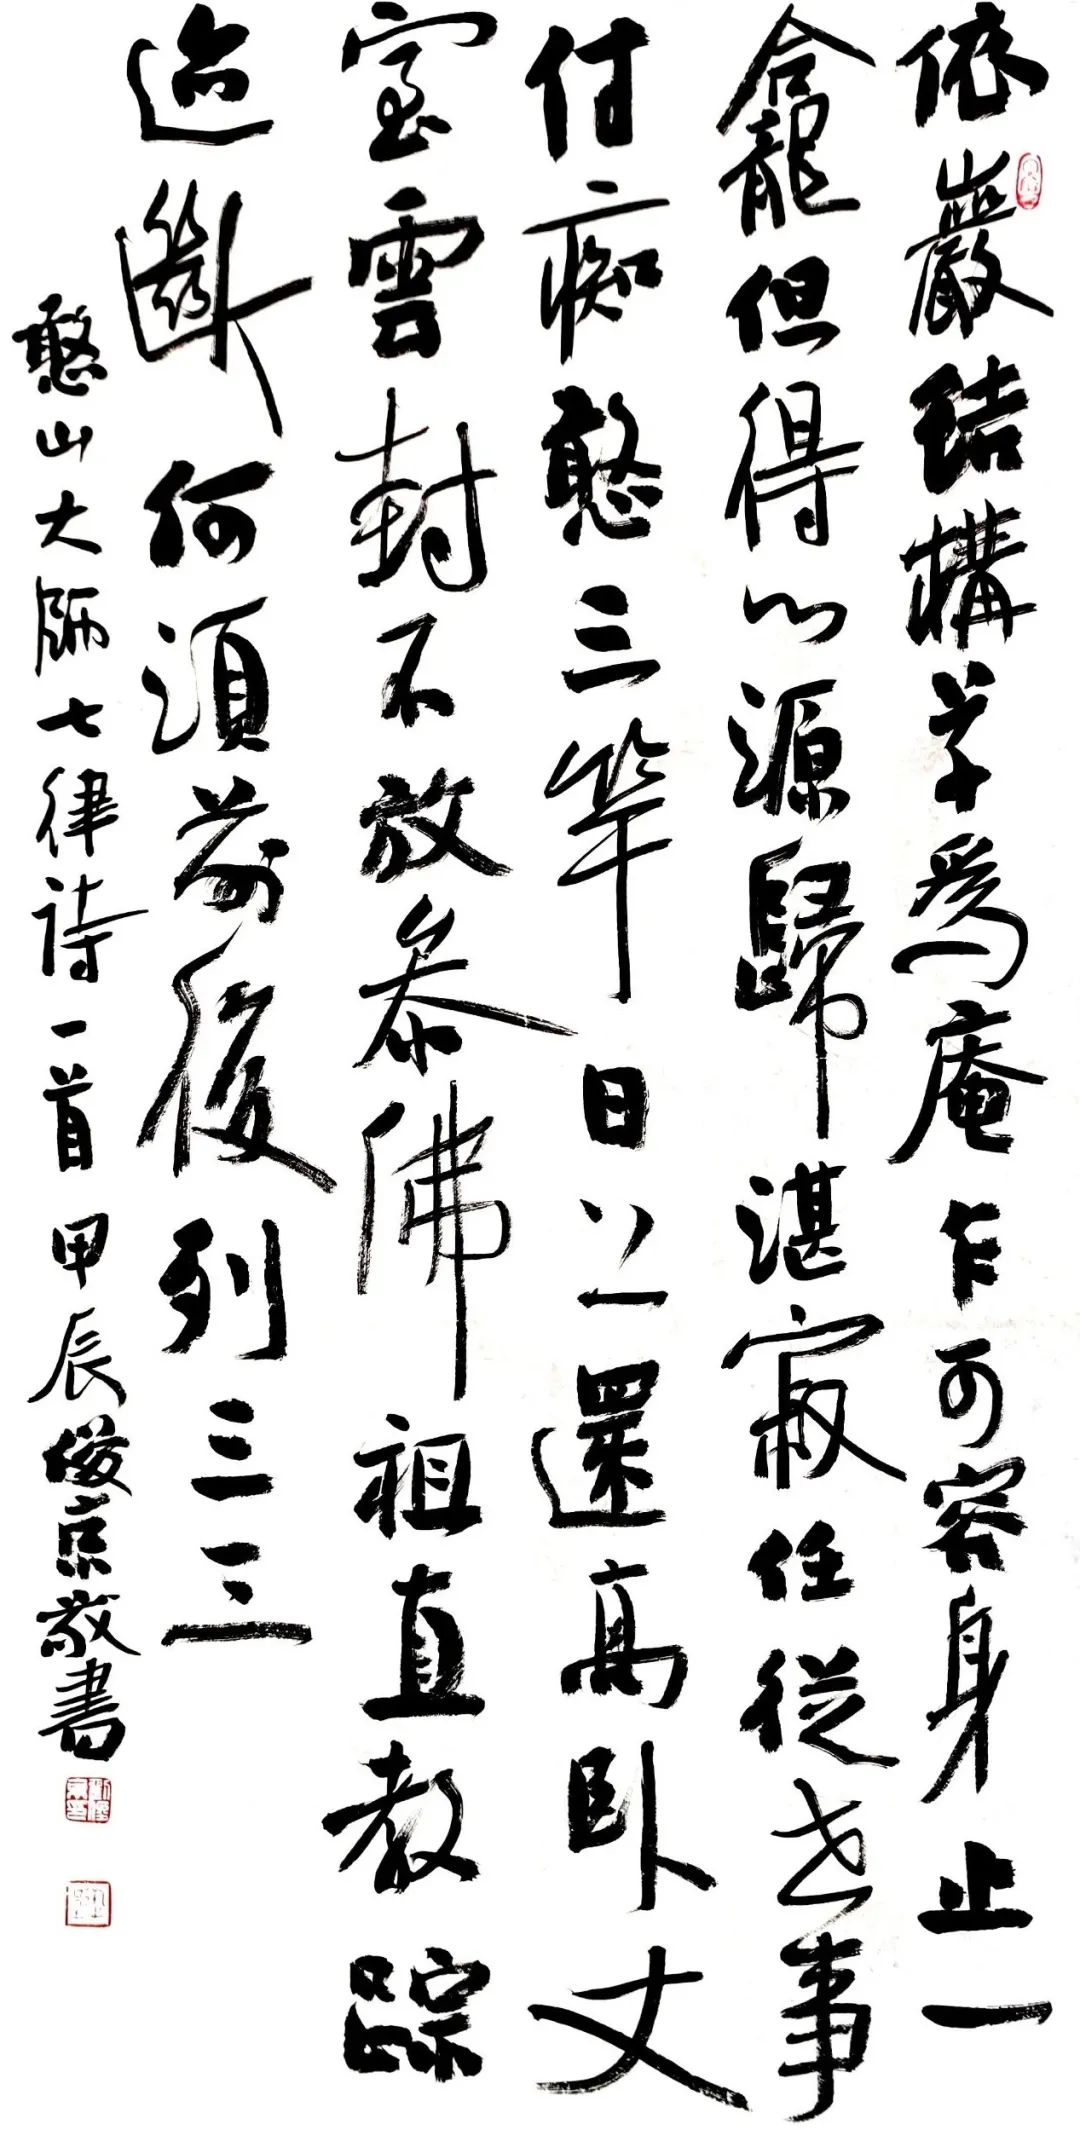 依巖結構草爲庵乍可容身止一
龕但得心源歸湛寂任從世事
付痴憨三竿日上還高卧丈
室雲封不放參佛祖直教踪
迹斷何須前後列三三
憨山大師七律詩一首甲辰俊京敬書